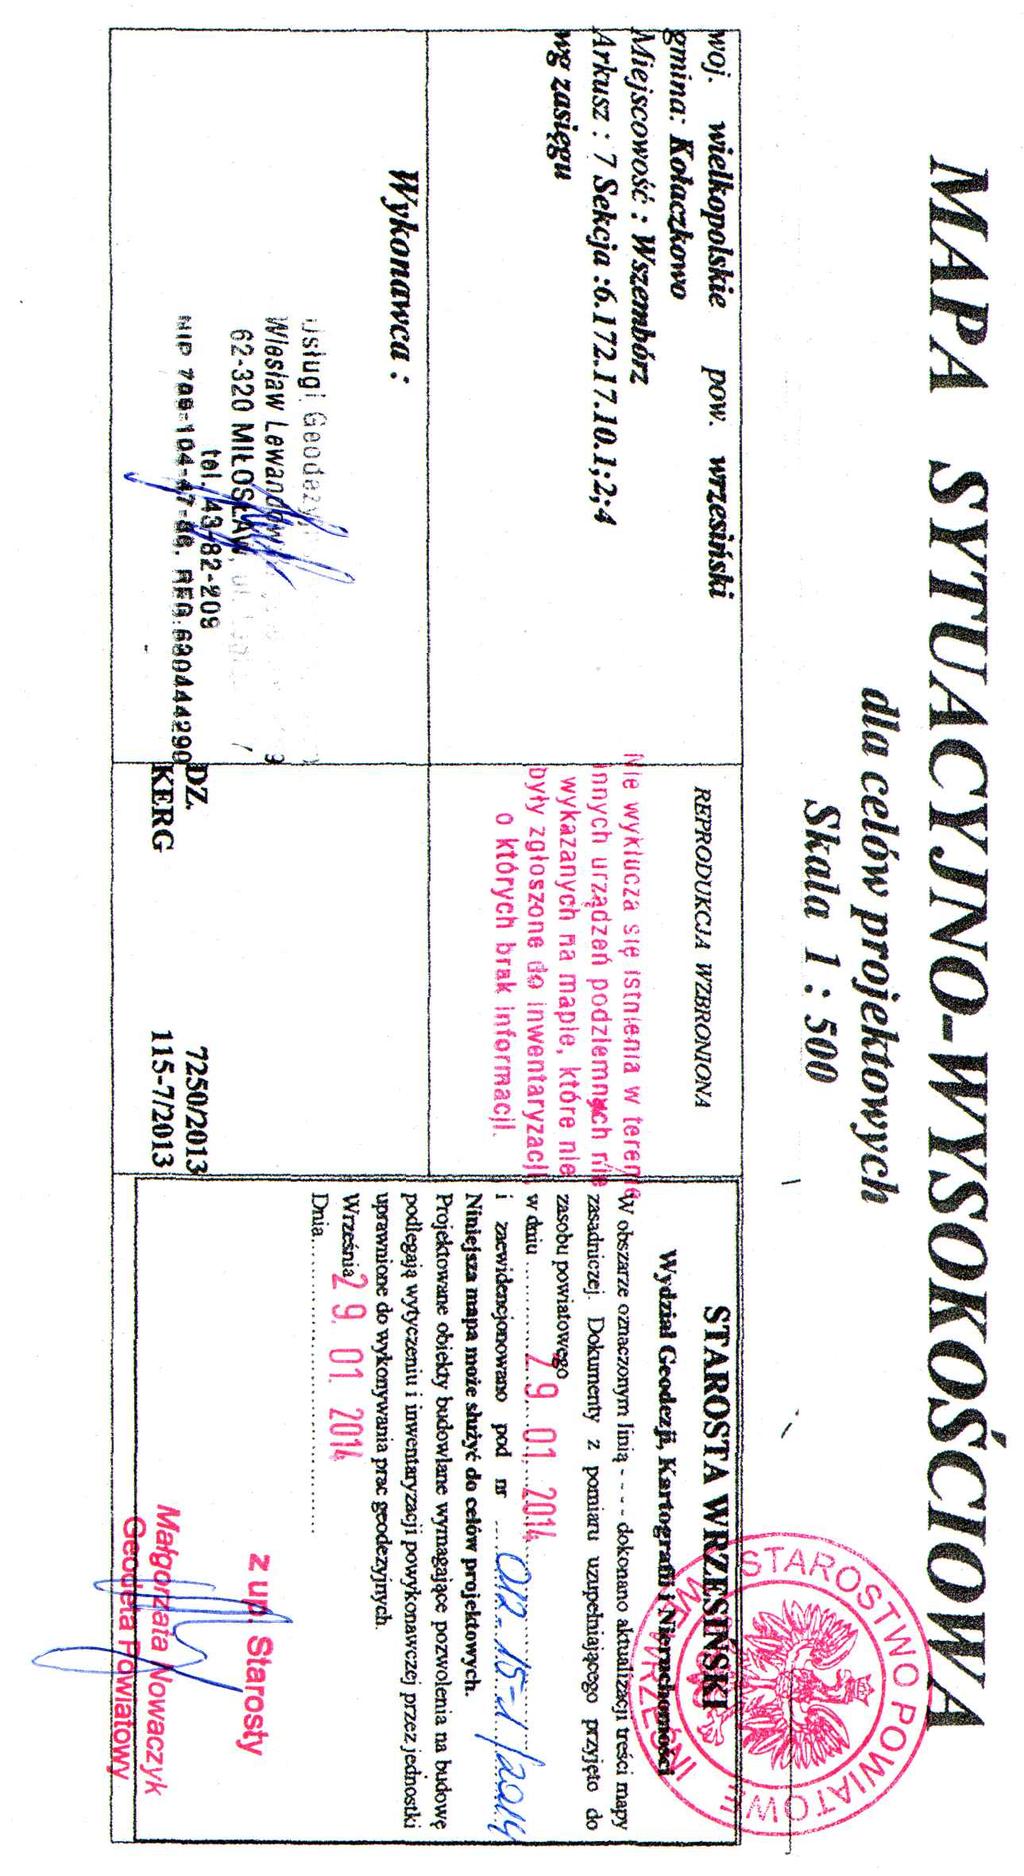 MAPA SYTUACYJNO-WYSOKOŚCIOWA
dla celów projektowych
Skala 1 : 500
woj. wielkopolskie pow. wrzesiński
gmina: Kołaczkowo
Miejscowość : Wszembórz
Arkusz : 7 Sekcja :6.172.17.10.1;2;4
wg zasięgu
REPRODUKCJA WZBRONIONA
Nie wyklucza się istnienia w terenie
innych urządzeń podziemnych nie
wykazanych na mapie, które nie
były zgłoszone do inwentaryzacji,
o których brak informacji.
STAROSTA WRZESIŃSKI
Wydział Geodezji, Kartografii i Nieruchomości
W obszarze oznaczonym linią - - - - dokonano aktualizacji treści mapy
zasadniczej. Dokumenty z pomiaru uzupełniającego przyjęto do
zasobu powiatowego
w dniu 29. 01. 2014
i zaewidencjonowano pod nr
Niniejsza mapa może służyć do celów projektowych.
Projektowane obiekty budowlane wymagające pozwolenia na budowę
podlegają wytyczeniu i inwentaryzacji powykonawczej przez jednostki
uprawnione do wykonywania prac geodezyjnych.
Września 29. 01. 2014
Dnia..............................
STAROSTWO POWIATOWE WE WRZEŚNI
z up. Starosty
Małgorzata Nowaczyk
Geodeta Powiatowy
Wykonawca :
Usługi Geodezyj
Wiesław Lewandow
62-320 MIŁOSŁAW,
tel. 43-82-209
DZ. 7250/2013
KERG 115-7/2013